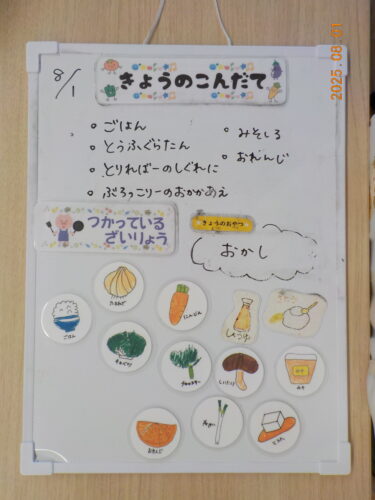 2025.08.01
8/1
きょうのこんだて
○ ごはん
○ とうふぐらたん
○ とりればーのしぐれに
○ ぶろっこりーのおかかあえ
○ みそしる
○ おれんじ
つかっている
ざいりょう
きょうのおやつ
おかし
ごはん
たまねぎ
にんじん
しょうゆ
さとう
キャベツ
ブロッコリー
しいたけ
みそ
みそ
おれんじ
とうふ